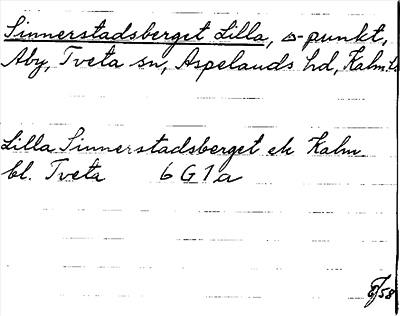 Sinnerstadsberget Lilla, △-punkt,
Åby, Tveta sn, Aspelands hd, Kalm.l.
Lilla Sinnerstadsberget ek Kalm
bl. Tveta 6 G 1 a
58